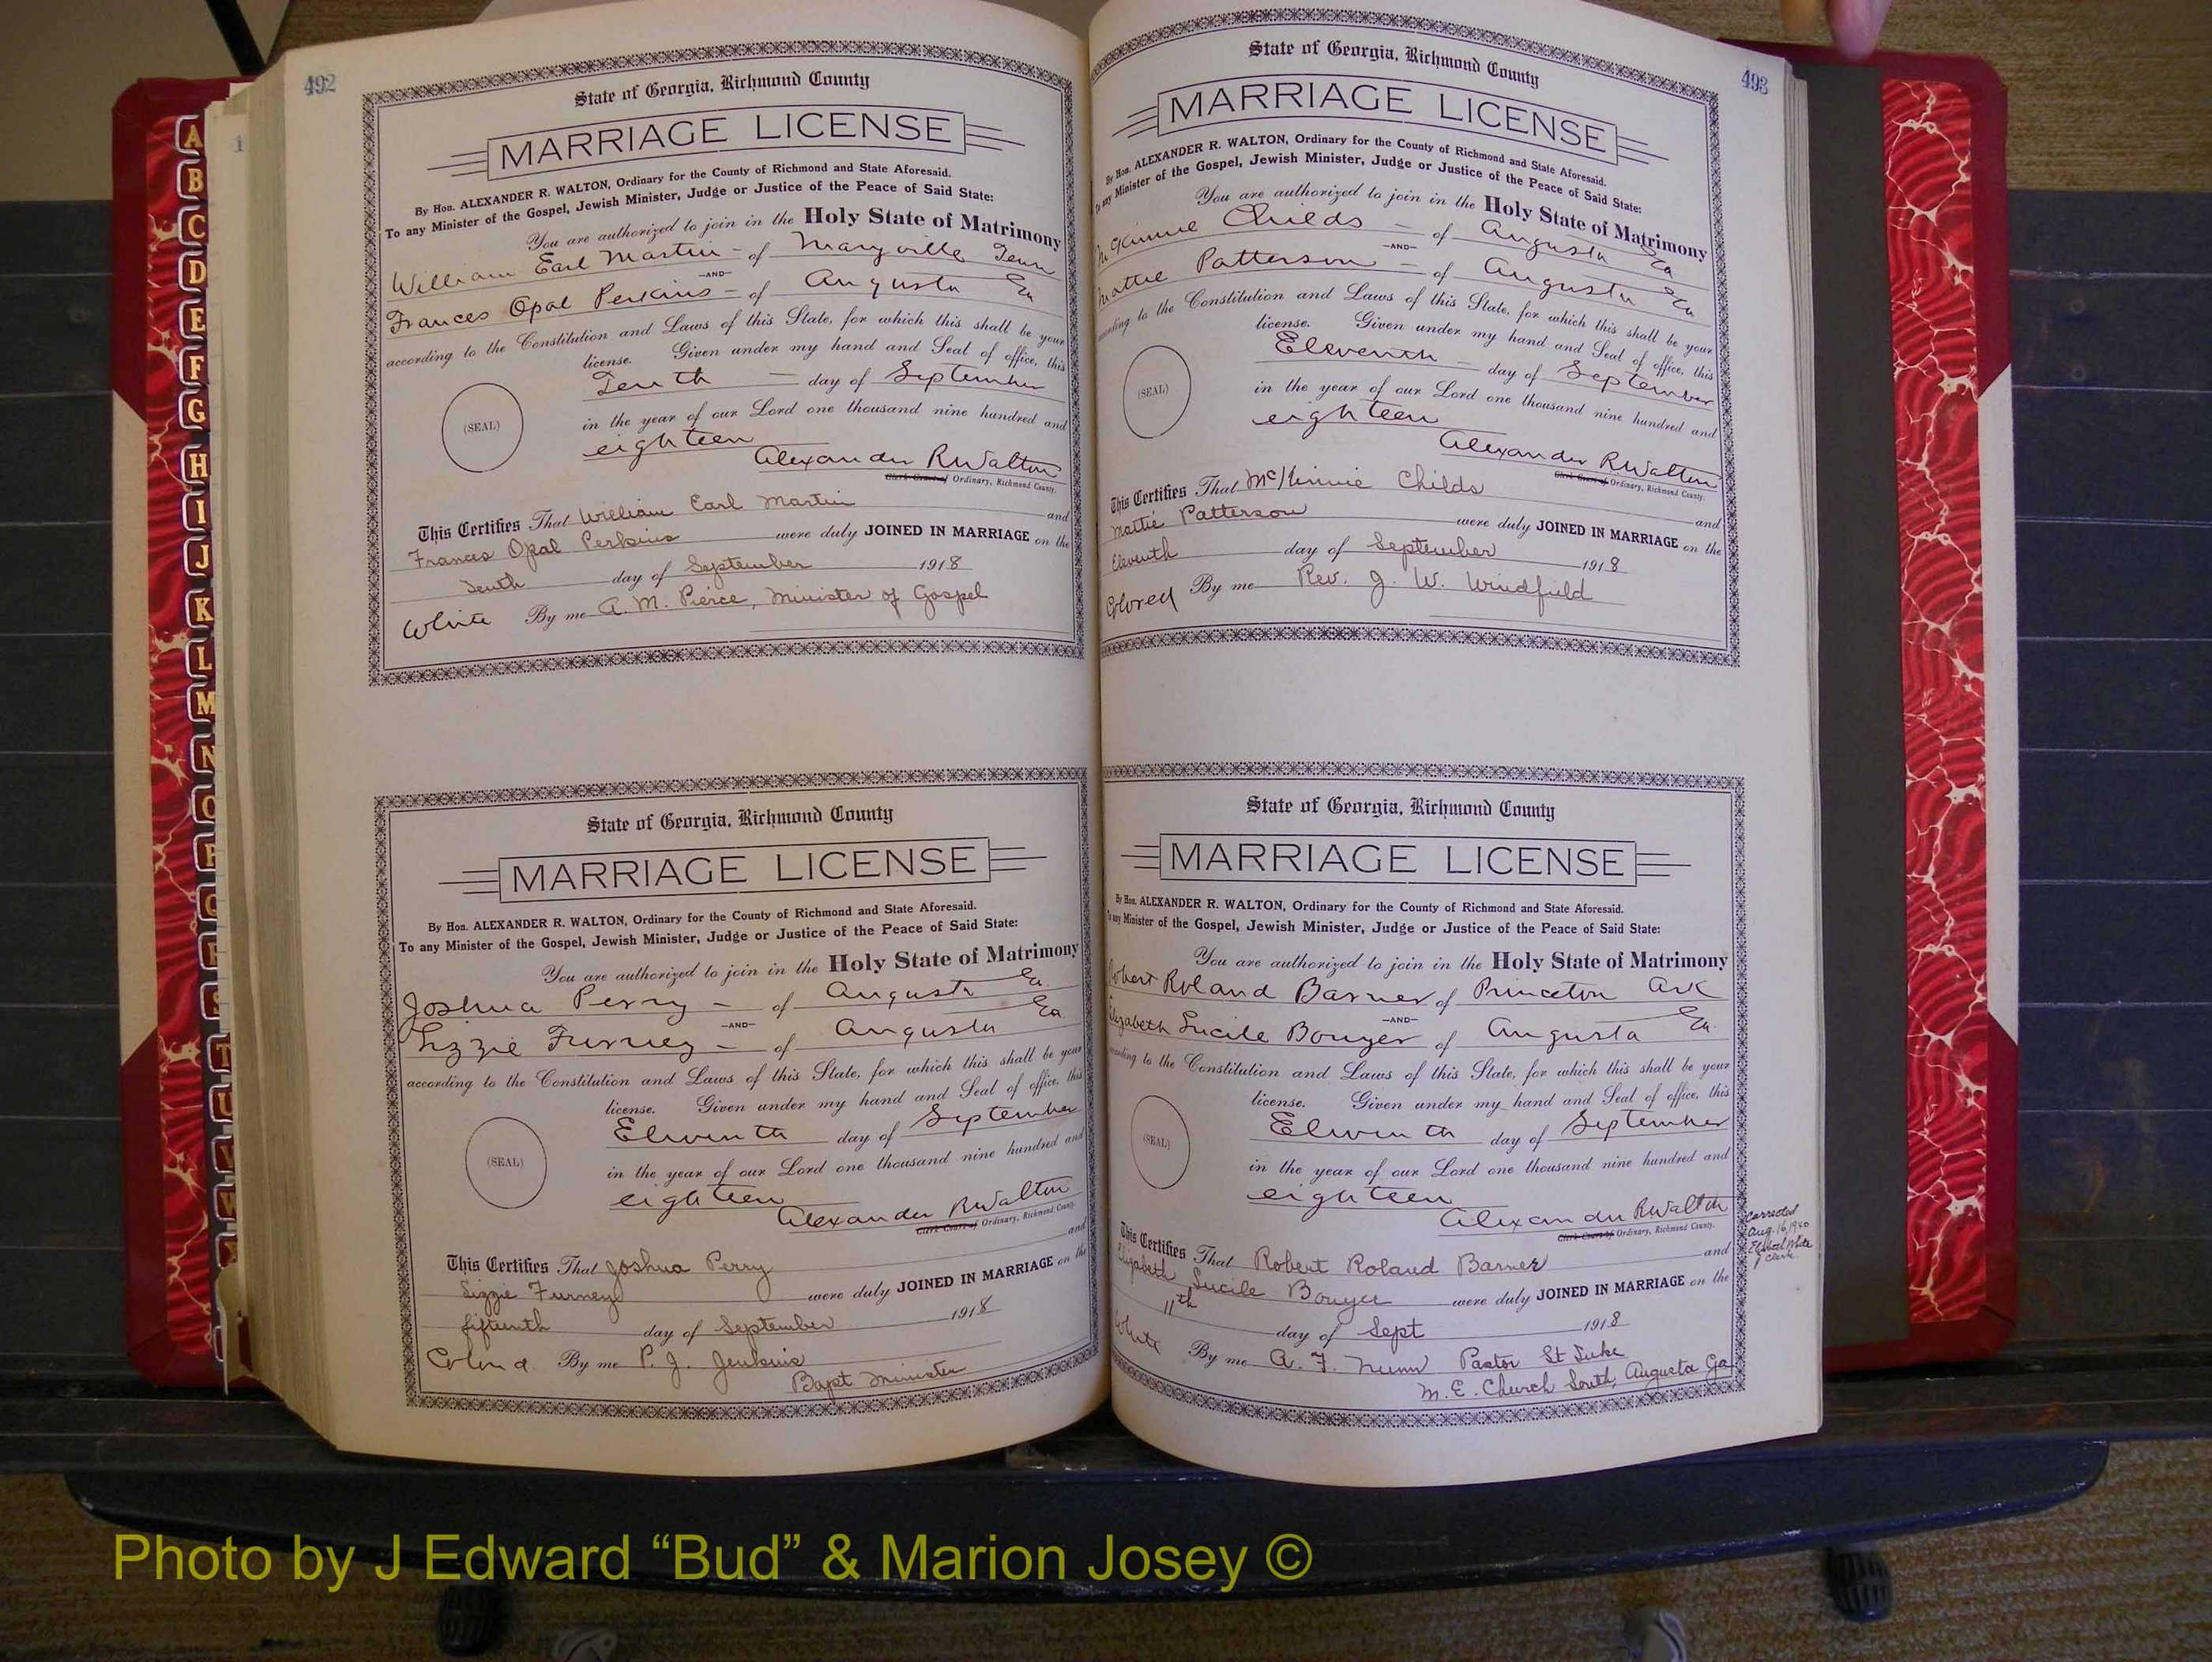 492
State of Georgia, Richmond County
MARRIAGE LICENSE
By Hon. ALEXANDER R. WALTON, Ordinary for the County of Richmond and State Aforesaid.
To any Minister of the Gospel, Jewish Minister, Judge or Justice of the Peace of Said State:
You are authorized to join in the Holy State of Matrimony
William Earl Martin - of Maryville Tenn
-AND-
Frances Opal Perkins - of Augusta Ga
according to the Constitution and Laws of this State, for which this shall be your
license. Given under my hand and Seal of office, this
Tenth - day of September
(SEAL)
in the year of our Lord one thousand nine hundred and
eighteen
Alexander R Walton
Clerk Court of Ordinary, Richmond County.
This Certifies That William Earl Martin and
Frances Opal Perkins were duly JOINED IN MARRIAGE on the
Tenth day of September 1918
White By me A. M. Pierce, Minister of Gospel
State of Georgia, Richmond County
MARRIAGE LICENSE
By Hon. ALEXANDER R. WALTON, Ordinary for the County of Richmond and State Aforesaid.
To any Minister of the Gospel, Jewish Minister, Judge or Justice of the Peace of Said State:
You are authorized to join in the Holy State of Matrimony
Joshua Perry - of Augusta Ga.
-AND-
Lizzie Furney - of Augusta Ga
according to the Constitution and Laws of this State, for which this shall be your
license. Given under my hand and Seal of office, this
Eleventh day of September
(SEAL)
in the year of our Lord one thousand nine hundred and
eighteen
Alexander R Walton
Clerk Court of Ordinary, Richmond County.
This Certifies That Joshua Perry and
Lizzie Furney were duly JOINED IN MARRIAGE on the
fifteenth day of September 1918
Colored By me P. J. Jenkins
Bapt Minister
493
State of Georgia, Richmond County
MARRIAGE LICENSE
By Hon. ALEXANDER R. WALTON, Ordinary for the County of Richmond and State Aforesaid.
To any Minister of the Gospel, Jewish Minister, Judge or Justice of the Peace of Said State:
You are authorized to join in the Holy State of Matrimony
McKinnie Childs - of Augusta Ga
-AND-
Mattie Patterson - of Augusta Ga
according to the Constitution and Laws of this State, for which this shall be your
license. Given under my hand and Seal of office, this
Eleventh - day of September
(SEAL)
in the year of our Lord one thousand nine hundred and
eighteen
Alexander R Walton
Clerk Court of Ordinary, Richmond County.
This Certifies That McKinnie Childs and
Mattie Patterson were duly JOINED IN MARRIAGE on the
Eleventh day of September 1918
Colored By me Rev. J. W. Windfield
State of Georgia, Richmond County
MARRIAGE LICENSE
By Hon. ALEXANDER R. WALTON, Ordinary for the County of Richmond and State Aforesaid.
To any Minister of the Gospel, Jewish Minister, Judge or Justice of the Peace of Said State:
You are authorized to join in the Holy State of Matrimony
Robert Roland Barner of Princeton Ark
-AND-
Elizabeth Lucile Bouyer of Augusta Ga.
according to the Constitution and Laws of this State, for which this shall be your
license. Given under my hand and Seal of office, this
Eleventh day of September
(SEAL)
in the year of our Lord one thousand nine hundred and
eighteen
Alexander R Walton
Clerk Court of Ordinary, Richmond County.
This Certifies That Robert Roland Barner and
Elizabeth Lucile Bouyer were duly JOINED IN MARRIAGE on the
11th day of Sept 1918
White By me A. F. Nunn Pastor St Luke
M. E. Church South, Augusta Ga
Corrected
Aug. 16, 1940
White
Clerk
A
B
C
D
E
F
G
H
I
J
K
L
M
N
O
P
Q
R
S
T
U
V
W
Photo by J Edward “Bud” & Marion Josey ©